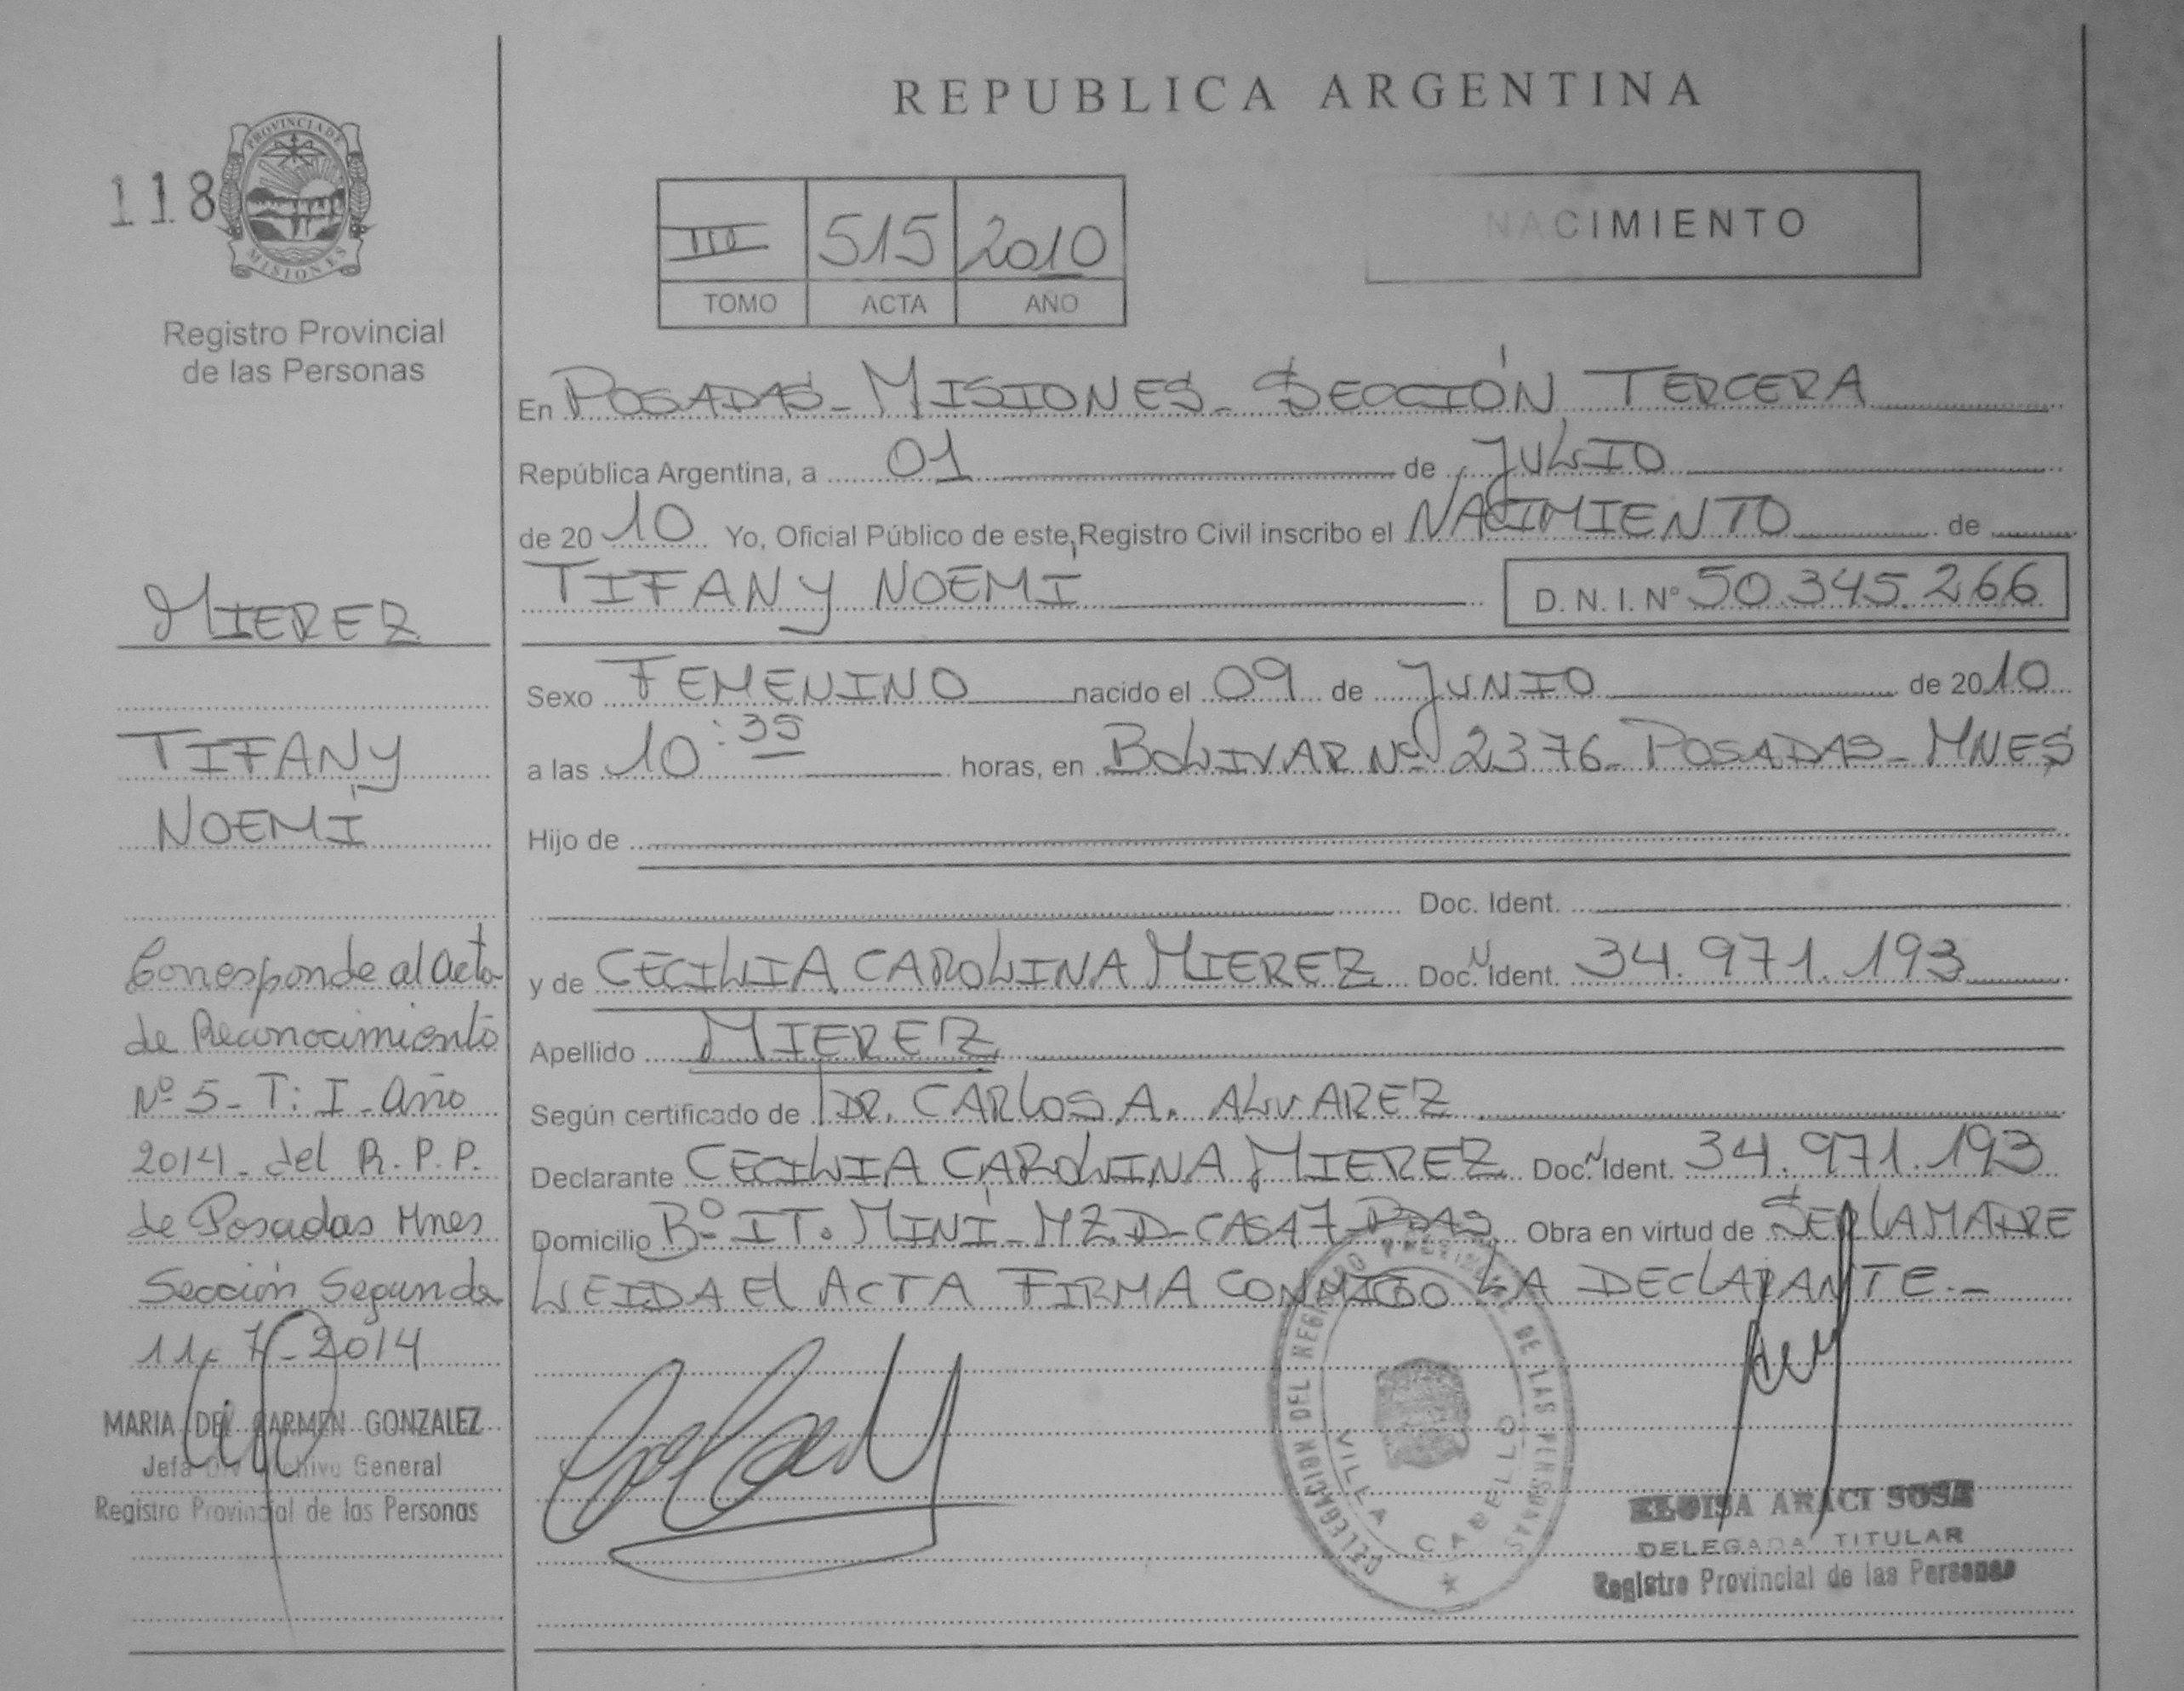 REPUBLICA ARGENTINA
118
PROVINCIA DE
MISIONES
Registro Provincial
de las Personas
III 515 2010
TOMO ACTA AÑO
NACIMIENTO
En POSADAS - MISIONES - SECCIÓN TERCERA
República Argentina, a 01 de JULIO
de 2010 Yo, Oficial Público de este Registro Civil inscribo el NACIMIENTO de
TIFANY NOEMÍ D. N. I. Nº 50.345.266
Sexo FEMENINO nacido el 09 de JUNIO de 2010
a las 10:35 horas, en BOLIVAR Nº 2376 - POSADAS - MNES
Hijo de
Doc. Ident.
y de CECILIA CAROLINA MIEREZ Doc. N Ident. 34.971.193
Apellido MIEREZ
Según certificado de DR. CARLOS A. ALVAREZ
Declarante CECILIA CAROLINA MIEREZ Doc. N Ident. 34.971.193
Domicilio Bº IT. MINÍ - MZ D - CASA 7 PDAS Obra en virtud de SER LA MADRE
LEIDA El ACTA FIRMA CONMIGO LA DECLARANTE.-
MIEREZ
TIFANY
NOEMÍ
Corresponde al acta
de Reconocimiento
Nº 5 - T: I - Año
2014 - del R. P. P.
de Posadas Mnes
Sección Segunda
11-7-2014
MARIA DEL CARMEN GONZALEZ
Jefa Div Archivo General
Registro Provincial de las Personas
DELEGACION DEL REGISTRO PROVINCIAL DE LAS PERSONAS
VILLA CABELLO
ELOISA ARACI SOSA
DELEGADA TITULAR
Registro Provincial de las Personas